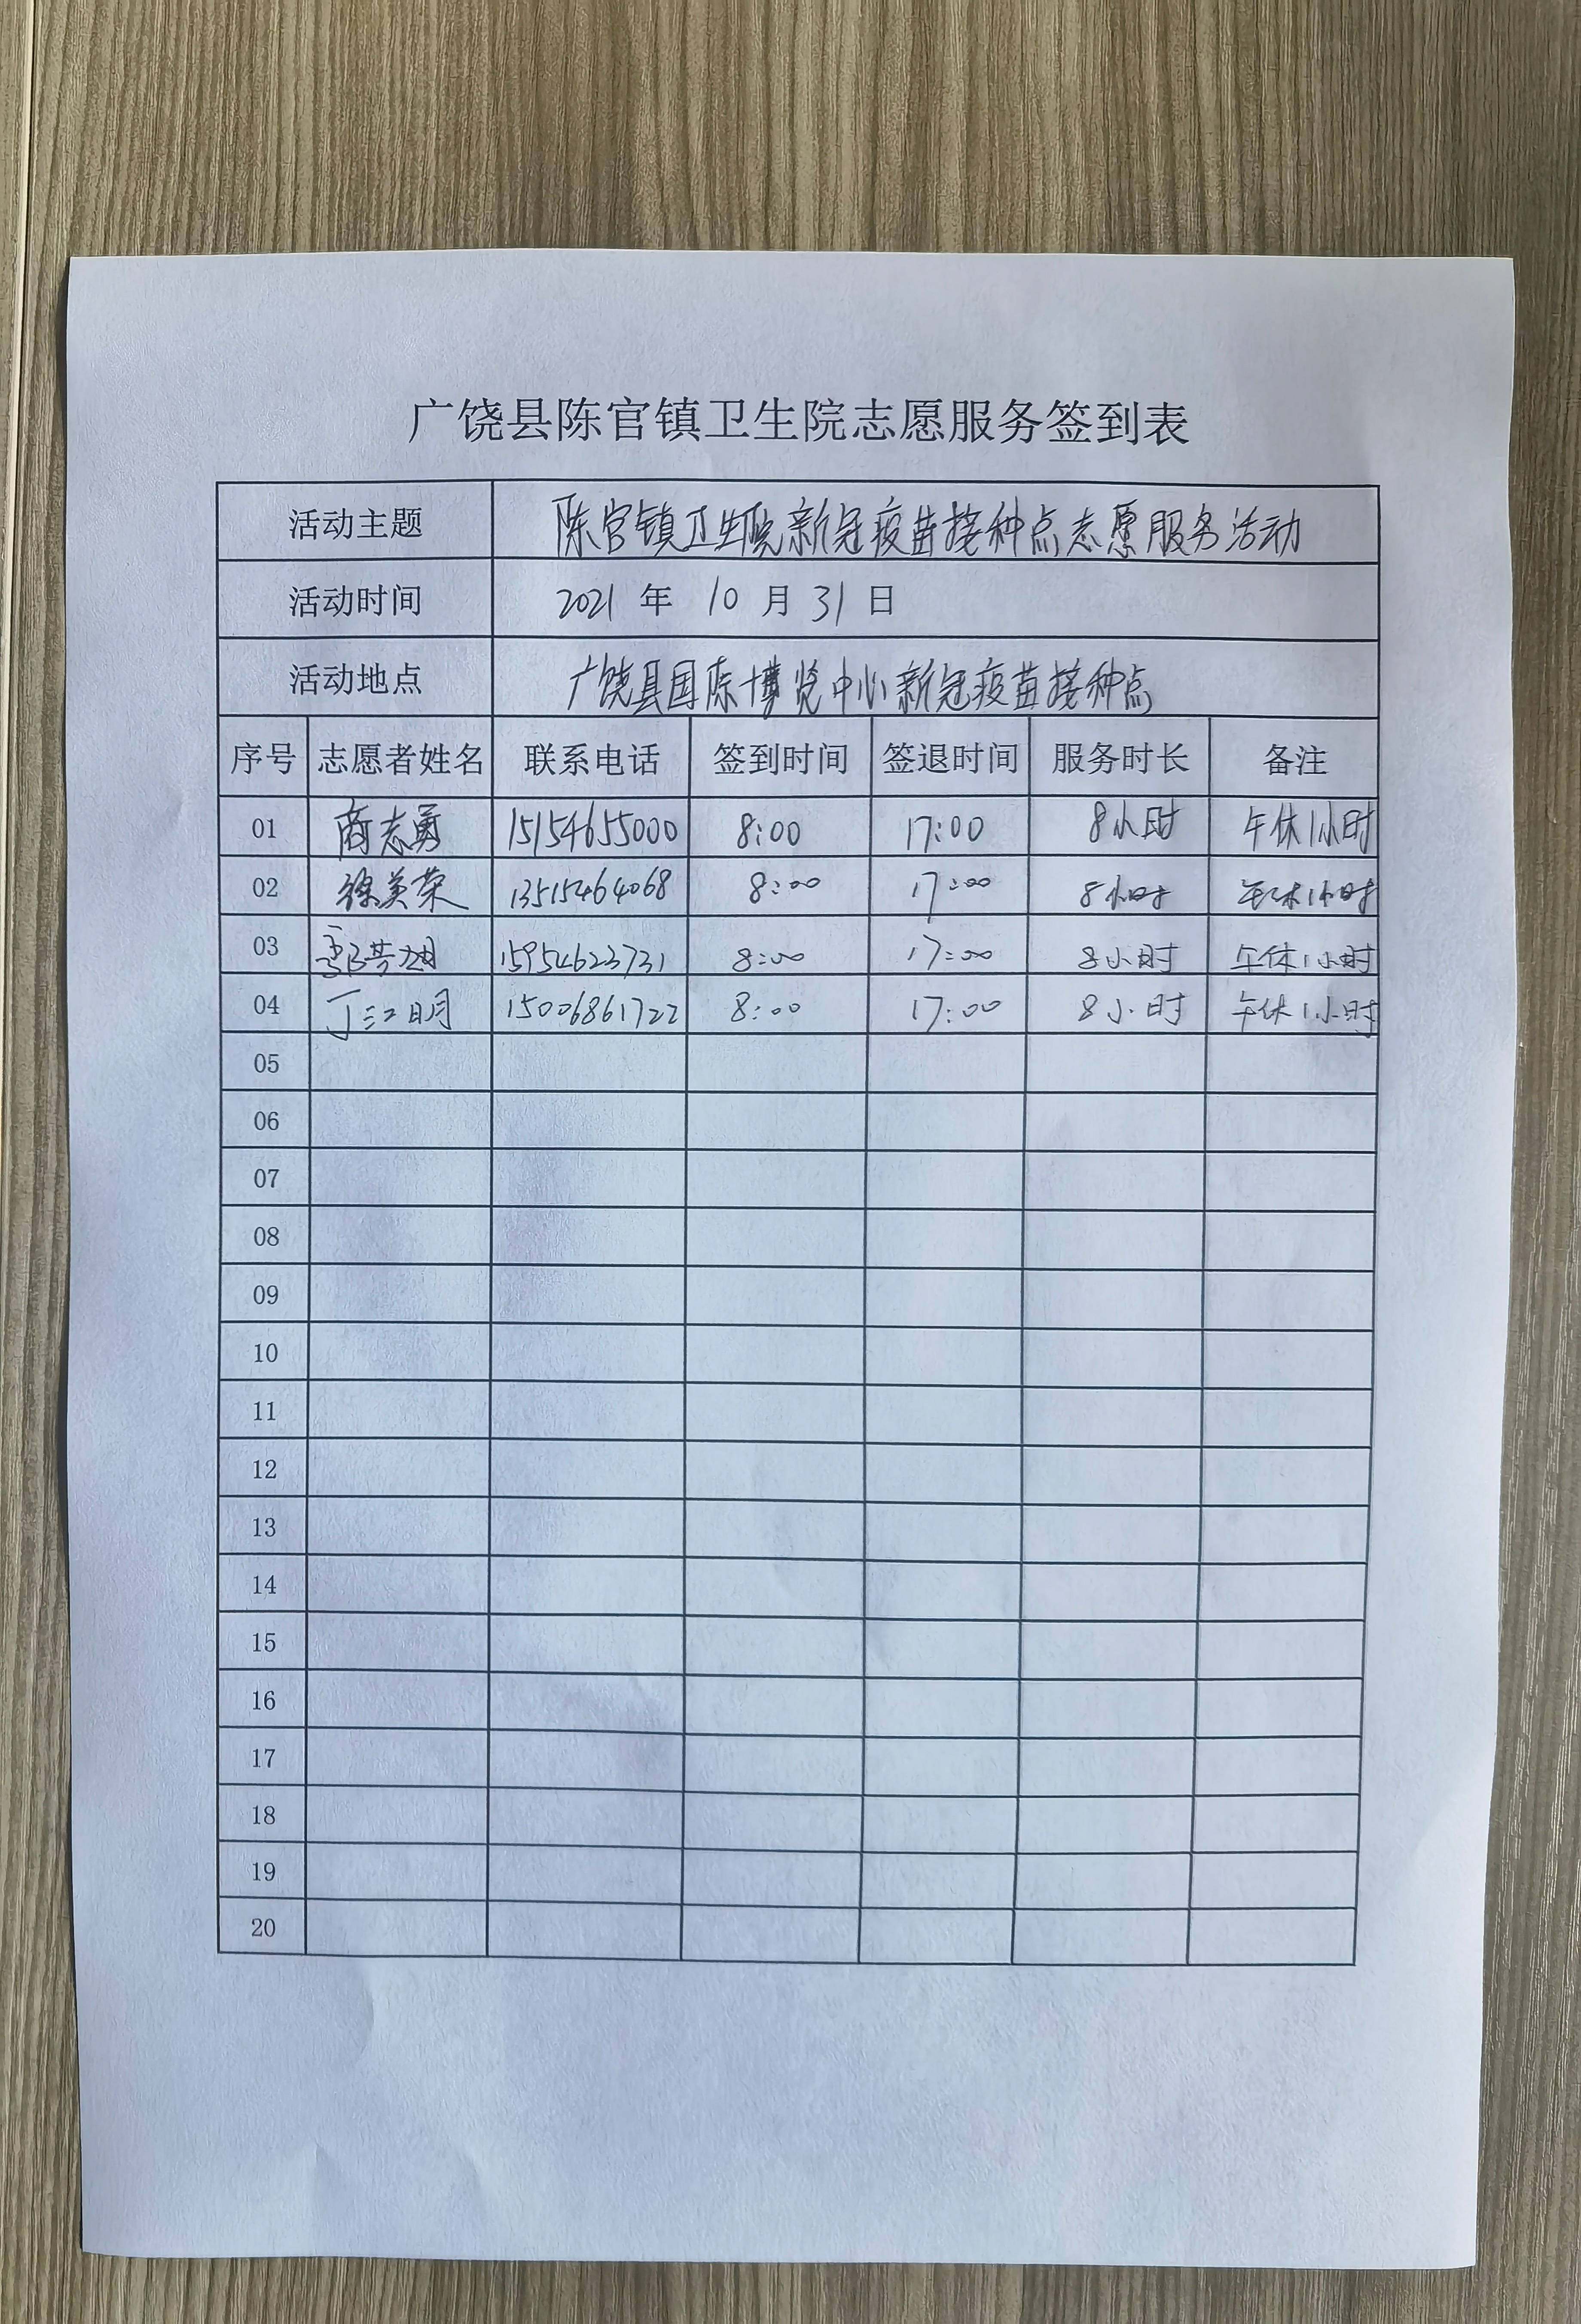 广饶县陈官镇卫生院志愿服务签到表
活动主题 陈官镇卫生院新冠疫苗接种点志愿服务活动
活动时间 2021 年 10 月 31 日
活动地点 广饶县国际博览中心新冠疫苗接种点
序号 志愿者姓名 联系电话 签到时间 签退时间 服务时长 备注
01 商志勇 15154655000 8:00 17:00 8小时 午休1小时
02 徐美荣 13515464068 8:00 17:00 8小时 午休1小时
03 15954623731 8:00 17:00 8小时 午休1小时
04 丁江明 15006861722 8:00 17:00 8小时 午休1小时
05
06
07
08
09
10
11
12
13
14
15
16
17
18
19
20